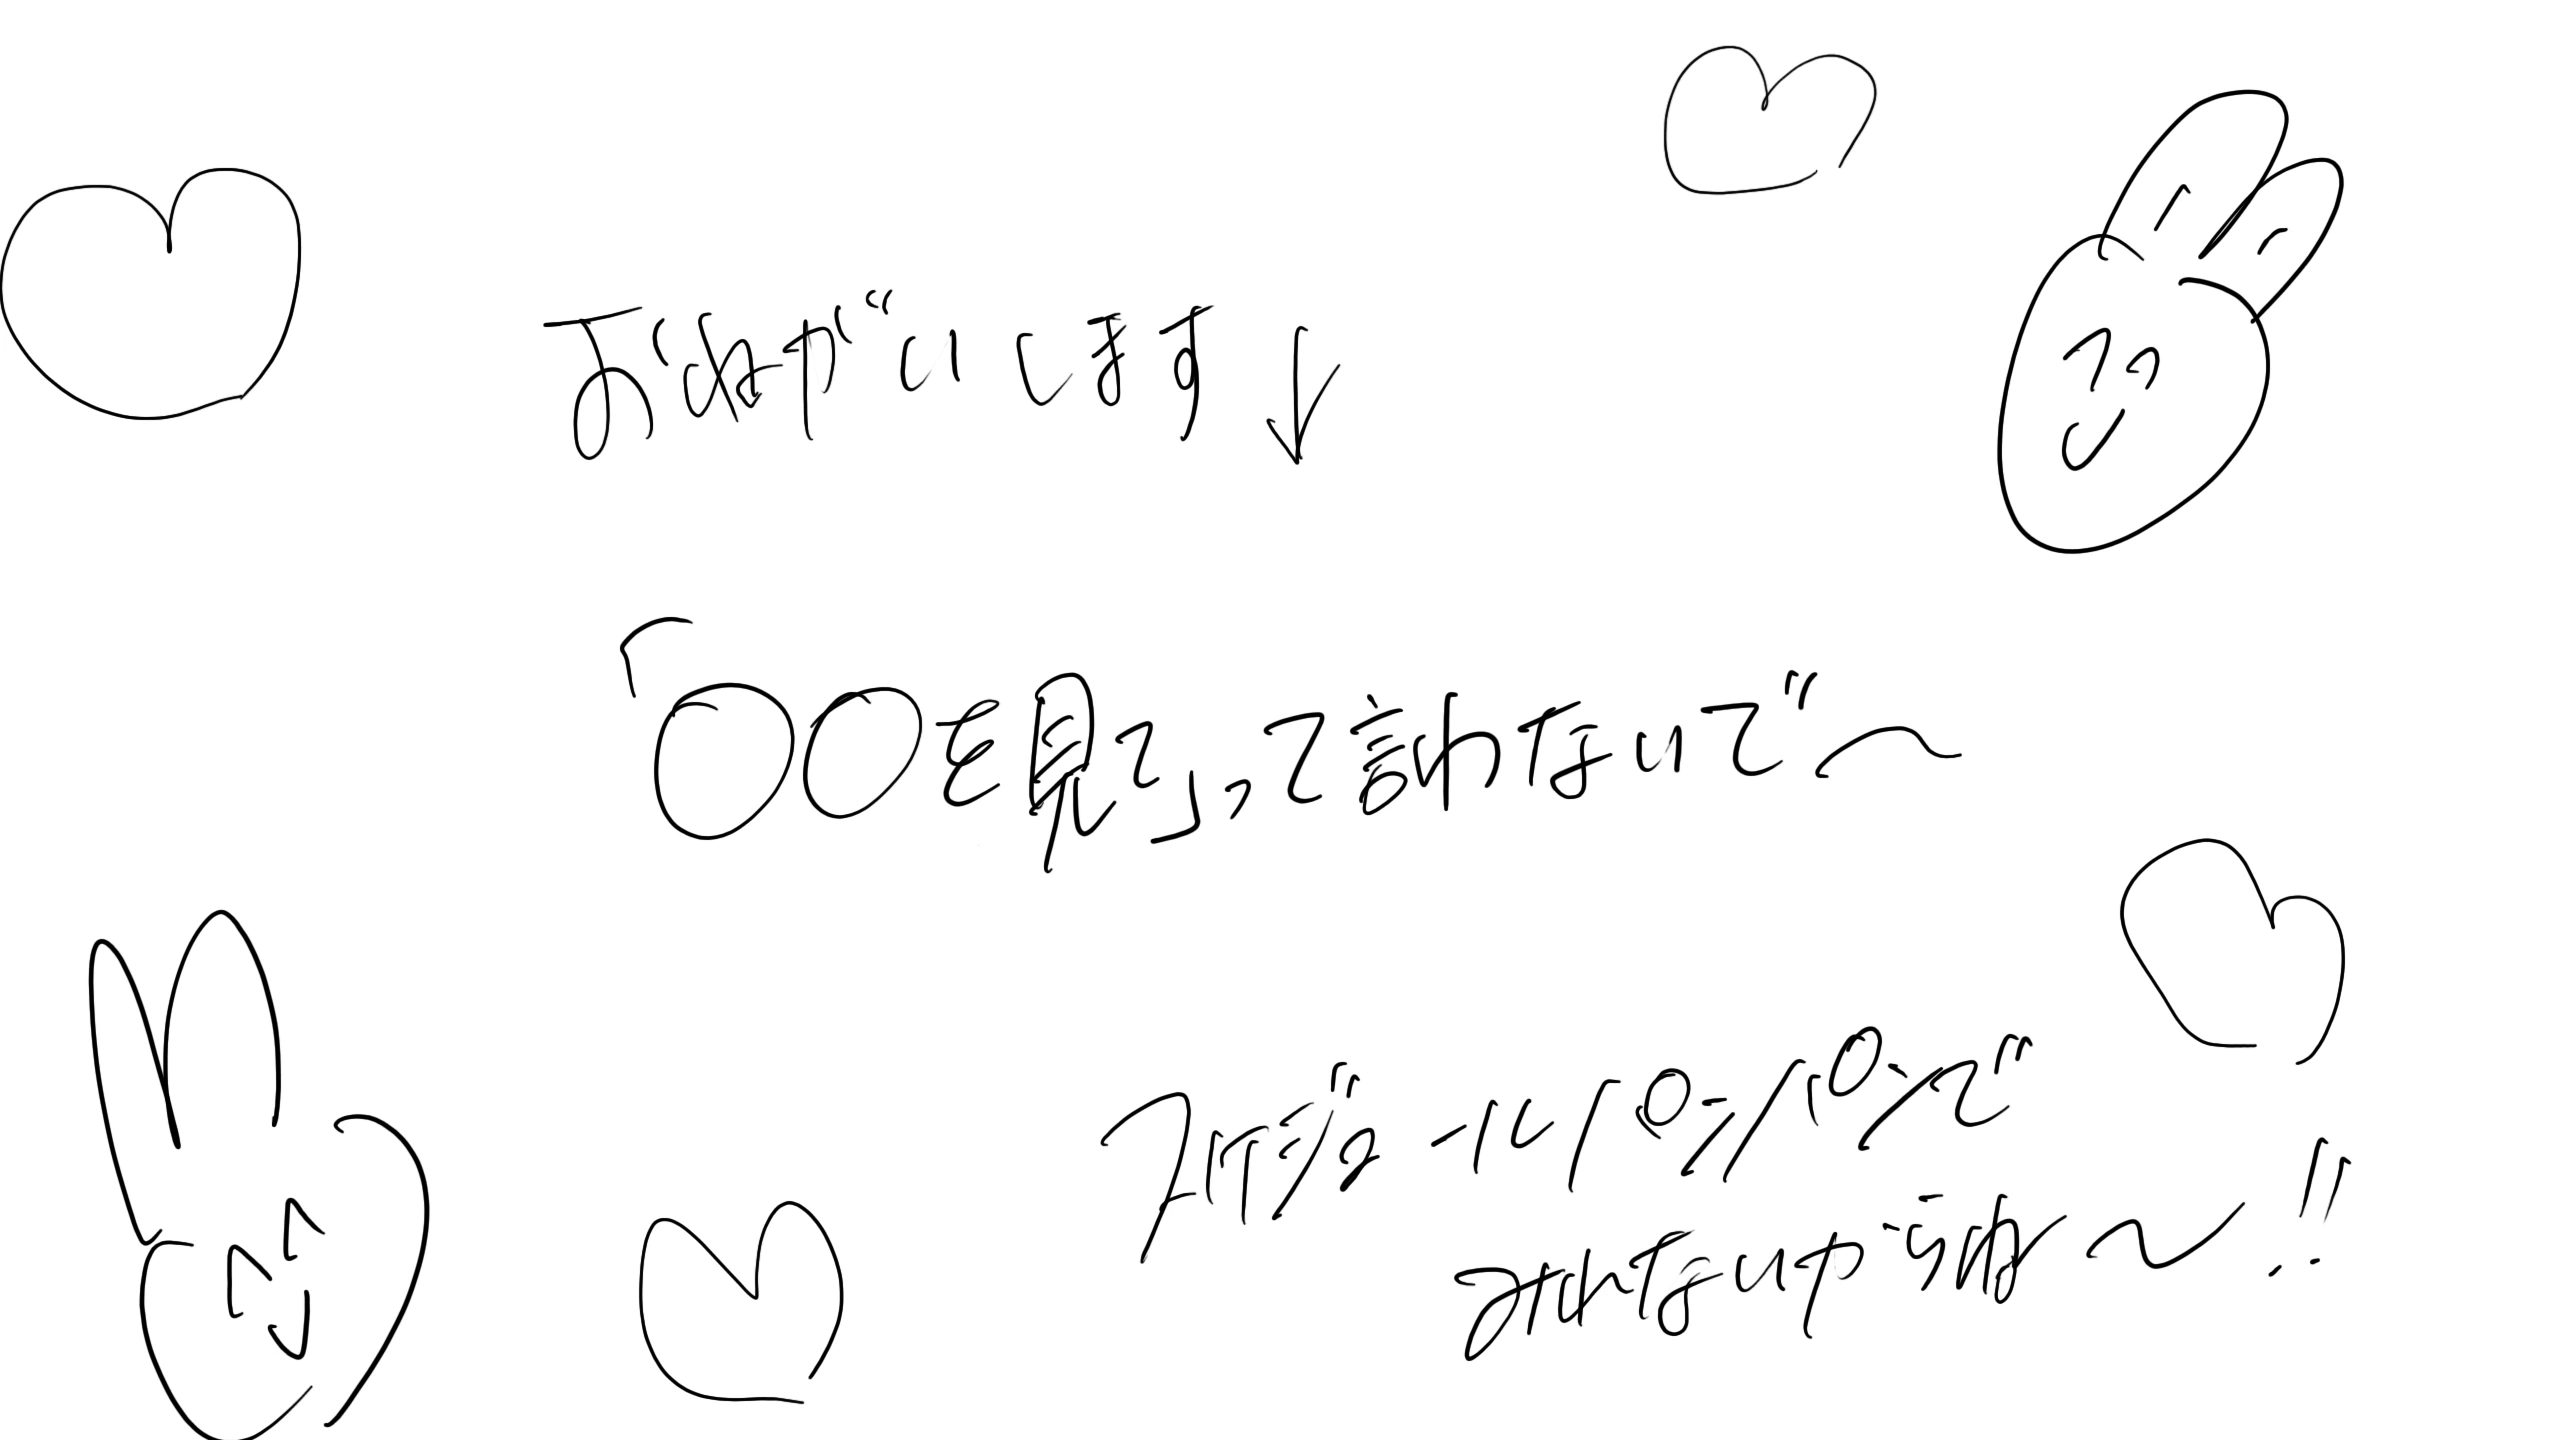 おねがいします↓
「〇〇を見て」って言わないで〜
スケジュールパンパンで
みれないからね〜!!